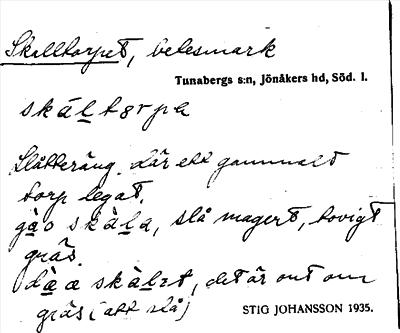 Skalltorpet, betesmark
Tunabergs s:n, Jönåkers hd, Söd. l.
skáltorpe
Slåtteräng, där ett gammalt
torp legat.
gào skàla, slå magert, tovigt
gräs.
dàa skàlet, det är ont om
gräs (att slå)
STIG JOHANSSON 1935.